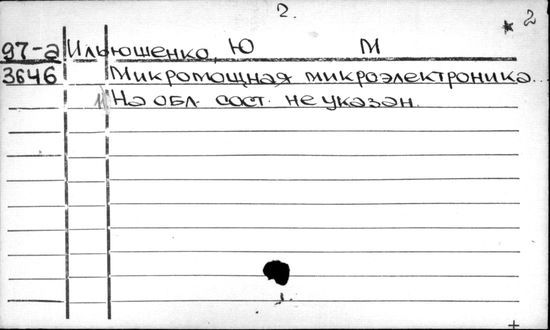 2.
* 2
97-а Ильюшенко, Ю М
3646 Микромощная микроэлектроника...
На обл. сост. не указан.